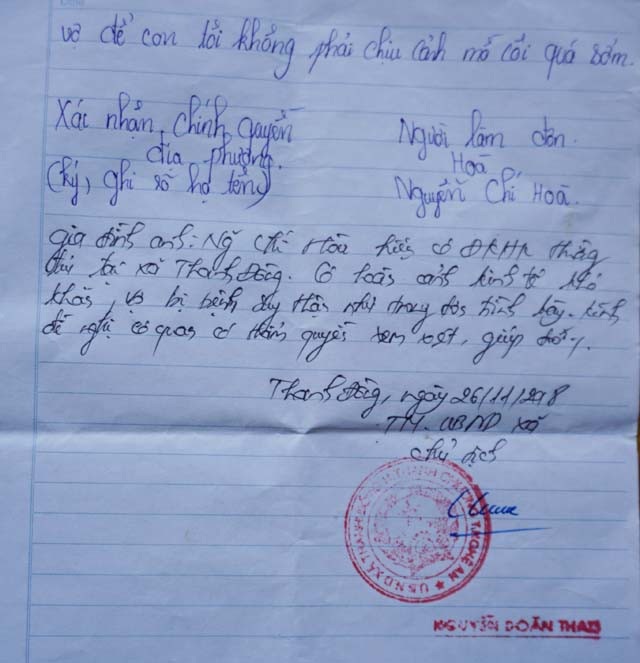 vợ để con tôi không phải chịu cảnh mồ côi quá sớm.
Xác nhận, Chính quyền
địa phương.
(ký, ghi rõ họ tên)
Người làm đơn.
Hoà
Nguyễn Chí Hoà.
gia đình anh: Ng Chí Hòa hiện có ĐKHK thường
trú tại xã Thanh Đồng. Có hoàn cảnh kinh tế khó
khăn, vợ bị bệnh suy thận như trong đơn trình bày. Kính
đề nghị cơ quan có thẩm quyền xem xét, giúp đỡ.
Thanh Đồng, ngày 26/11/2018
TM. UBND xã
Chủ tịch
NGUYỄN DOÃN THÁI